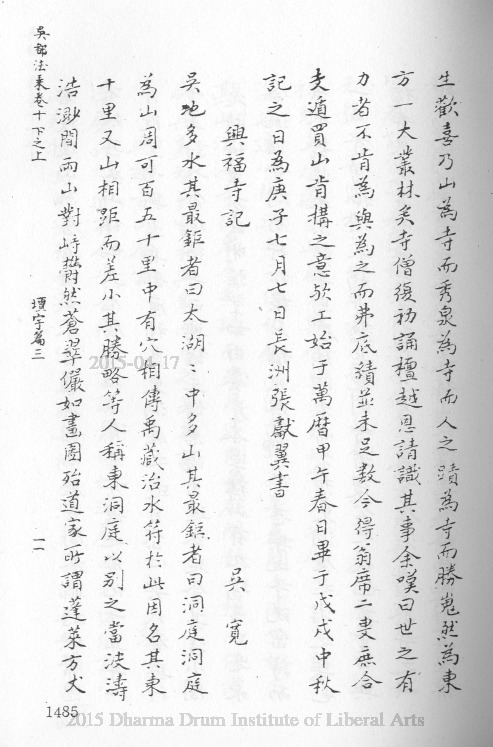 生歡喜乃山為寺而秀泉為寺而人之蹟為寺而勝嵬然為東
方一大叢林矣寺僧復初誦檀越恩請識其事余嘆曰世之有
力者不肯為與為之而弗底績並未足數今得翁席二叟庶合
支遁買山肯構之意欤工始于萬曆甲午春日畢于戊戌中秋
記之日為庚子七月七日長洲張獻翼書
興福寺記 吳寬
吳地多水其最鉅者曰太湖〻中多山其最鉅者曰洞庭洞庭
為山周可百五十里中有穴相傳禹藏治水符於此因名其東
十里又山相距而差小其勝略等人稱東洞庭以別之當波濤
浩渺間兩山對峙欝然蒼翠儼如畫圖殆道家所謂蓬萊方丈
吳都法乘卷十下之上 壇宇篇三 一一
1485
2015-04-17
2015 Dharma Drum Institute of Liberal Arts